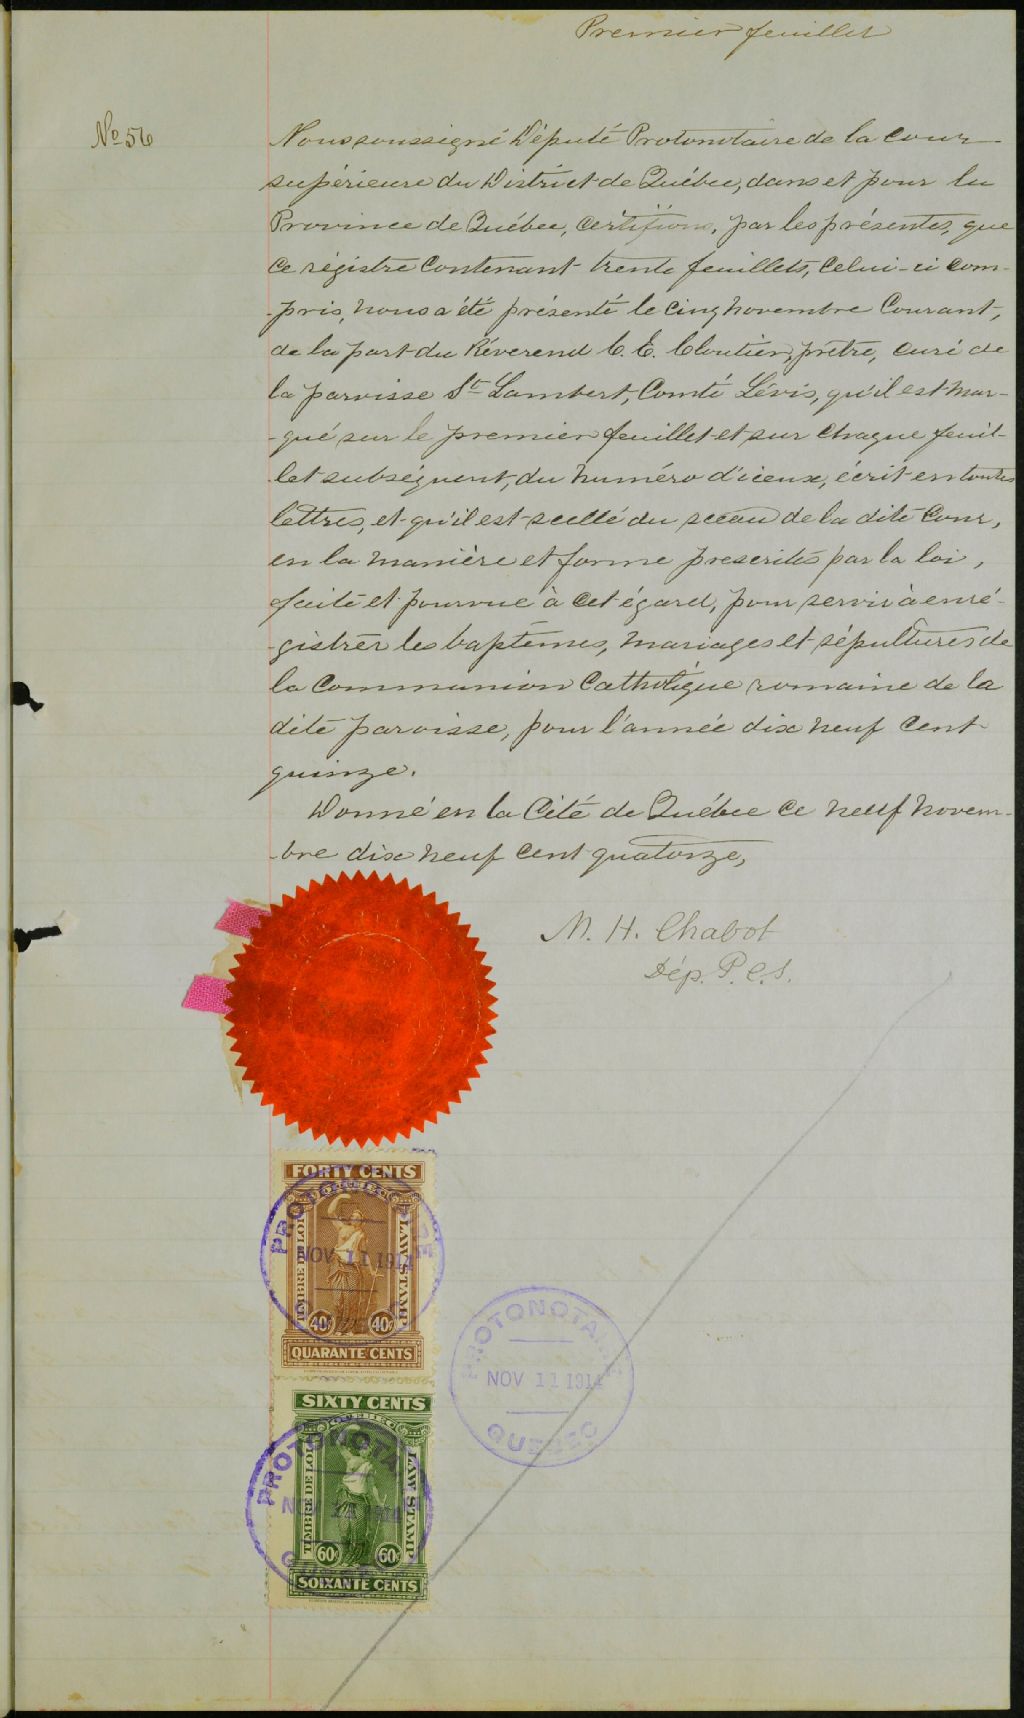 Premier feuillet
No 56
Nous soussigné Député Protonotaire de la Cour
supérieure du District de Québec, dans et pour la
Province de Québec, certifions, par les présentes, que
ce régistre contenant trente feuillets, celui-ci com-
pris, nous a été présenté le cinq novembre courant,
de la part du Réverend C. E. Cloutier, prêtre, curé de
la paroisse St Lambert, Comté Lévis, qu'il est mar-
-qué sur le premier feuillet et sur chaque feuil-
let subséquent, du numéro d'iceux, écrit en toutes
lettres, et qu'il est scellé du sceau de la dite Cour,
en la manière et forme prescrites par la loi,
faite et pourvue à cet égard, pour servir à enré-
-gistrer les baptêmes, mariages et sépultures de
la Communion Catholique romaine de la
dite paroisse, pour l'année dix neuf cent
quinze.
Donné en la Cité de Québec ce neuf novem-
-bre dix neuf cent quatorze,
M. H. Chabot
Dép. P. C. S.
FORTY CENTS
TIMBRE DE LOI
LAW STAMP
40c 40c
QUARANTE CENTS
NOV 11 1914
PROTONOTAIRE
NOV 11 1914
QUEBEC
SIXTY CENTS
QUEBEC
TIMBRE DE LOI
LAW STAMP
60c 60c
SOIXANTE CENTS
PROTONOTA
NOV 11 1914